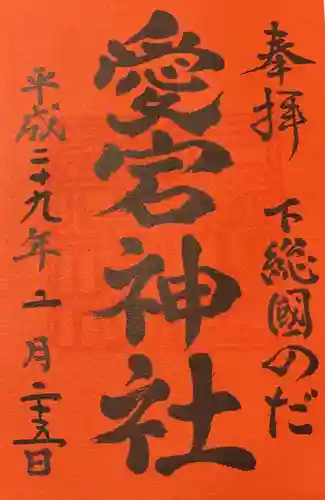 奉拝
下総國のだ
愛宕神社
平成二十九年五月二十五日